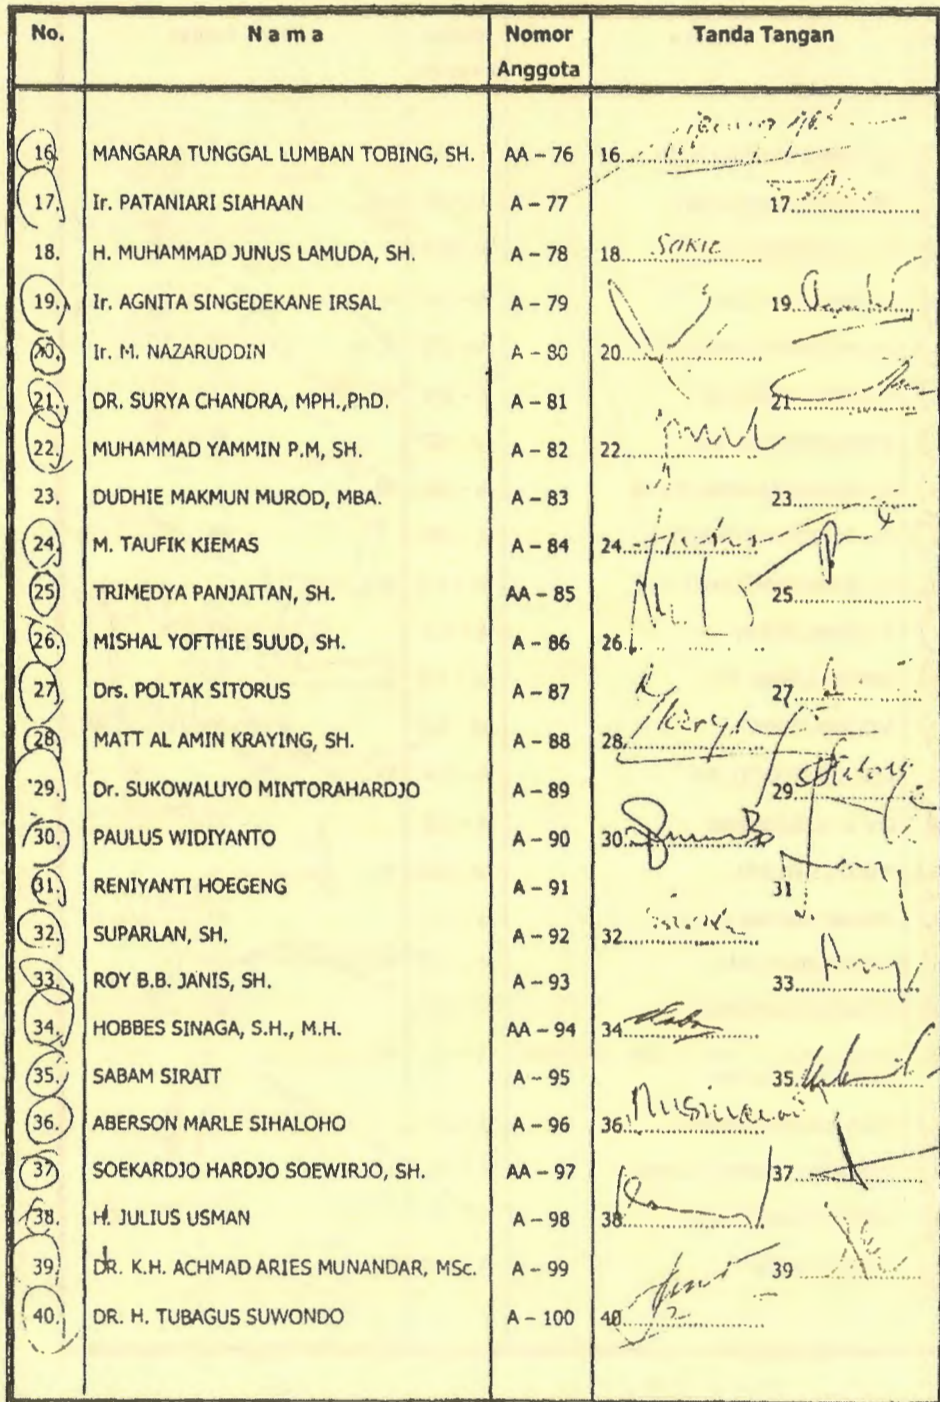 No. N a m a Nomor Anggota Tanda Tangan
16. MANGARA TUNGGAL LUMBAN TOBING, SH. AA – 76 16
17. Ir. PATANIARI SIAHAAN A – 77 17
18. H. MUHAMMAD JUNUS LAMUDA, SH. A – 78 18 Sakit
19. Ir. AGNITA SINGEDEKANE IRSAL A – 79 19
20. Ir. M. NAZARUDDIN A – 80 20
21. DR. SURYA CHANDRA, MPH.,PhD. A – 81 21
22. MUHAMMAD YAMMIN P.M, SH. A – 82 22
23. DUDHIE MAKMUN MUROD, MBA. A – 83 23
24. M. TAUFIK KIEMAS A – 84 24
25 TRIMEDYA PANJAITAN, SH. AA – 85 25
26. MISHAL YOFTHIE SUUD, SH. A – 86 26
27. Drs. POLTAK SITORUS A – 87 27
28. MATT AL AMIN KRAYING, SH. A – 88 28
29. Dr. SUKOWALUYO MINTORAHARDJO A – 89 29
30. PAULUS WIDIYANTO A – 90 30
31. RENIYANTI HOEGENG A – 91 31
32. SUPARLAN, SH. A – 92 32
33. ROY B.B. JANIS, SH. A – 93 33
34. HOBBES SINAGA, S.H., M.H. AA – 94 34
35. SABAM SIRAIT A – 95 35
36. ABERSON MARLE SIHALOHO A – 96 36
37 SOEKARDJO HARDJO SOEWIRJO, SH. AA – 97 37
38. H. JULIUS USMAN A – 98 38
39. DR. K.H. ACHMAD ARIES MUNANDAR, MSc. A – 99 39
40. DR. H. TUBAGUS SUWONDO A – 100 40